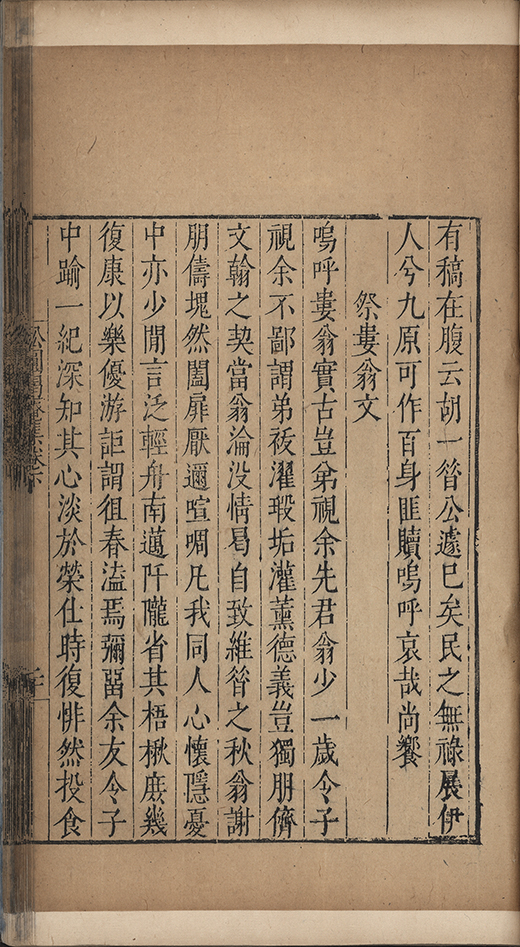 有稿在腹云胡一昝公遽已矣民之無祿展伊
人兮九原可作百身匪贖嗚呼哀哉尚饗
祭婁翁文
嗚呼婁翁實古豈弟視余先君翁少一歲令子
視余不鄙謂弟祓濯瑕垢灌薰德義豈獨朋儕
文翰之契當翁淪没情曷自致維昝之秋翁謝
朋儔塊然闔扉厭邇喧啁凡我同人心懷隱憂
中亦少閒言泛輕舟南邁阡隴省其梧楸庶幾
復康以樂優游詎謂徂春溘焉彌留余友令子
中踰一紀深知其心淡於榮仕時復悱然投食
松圓偈庵集卷六